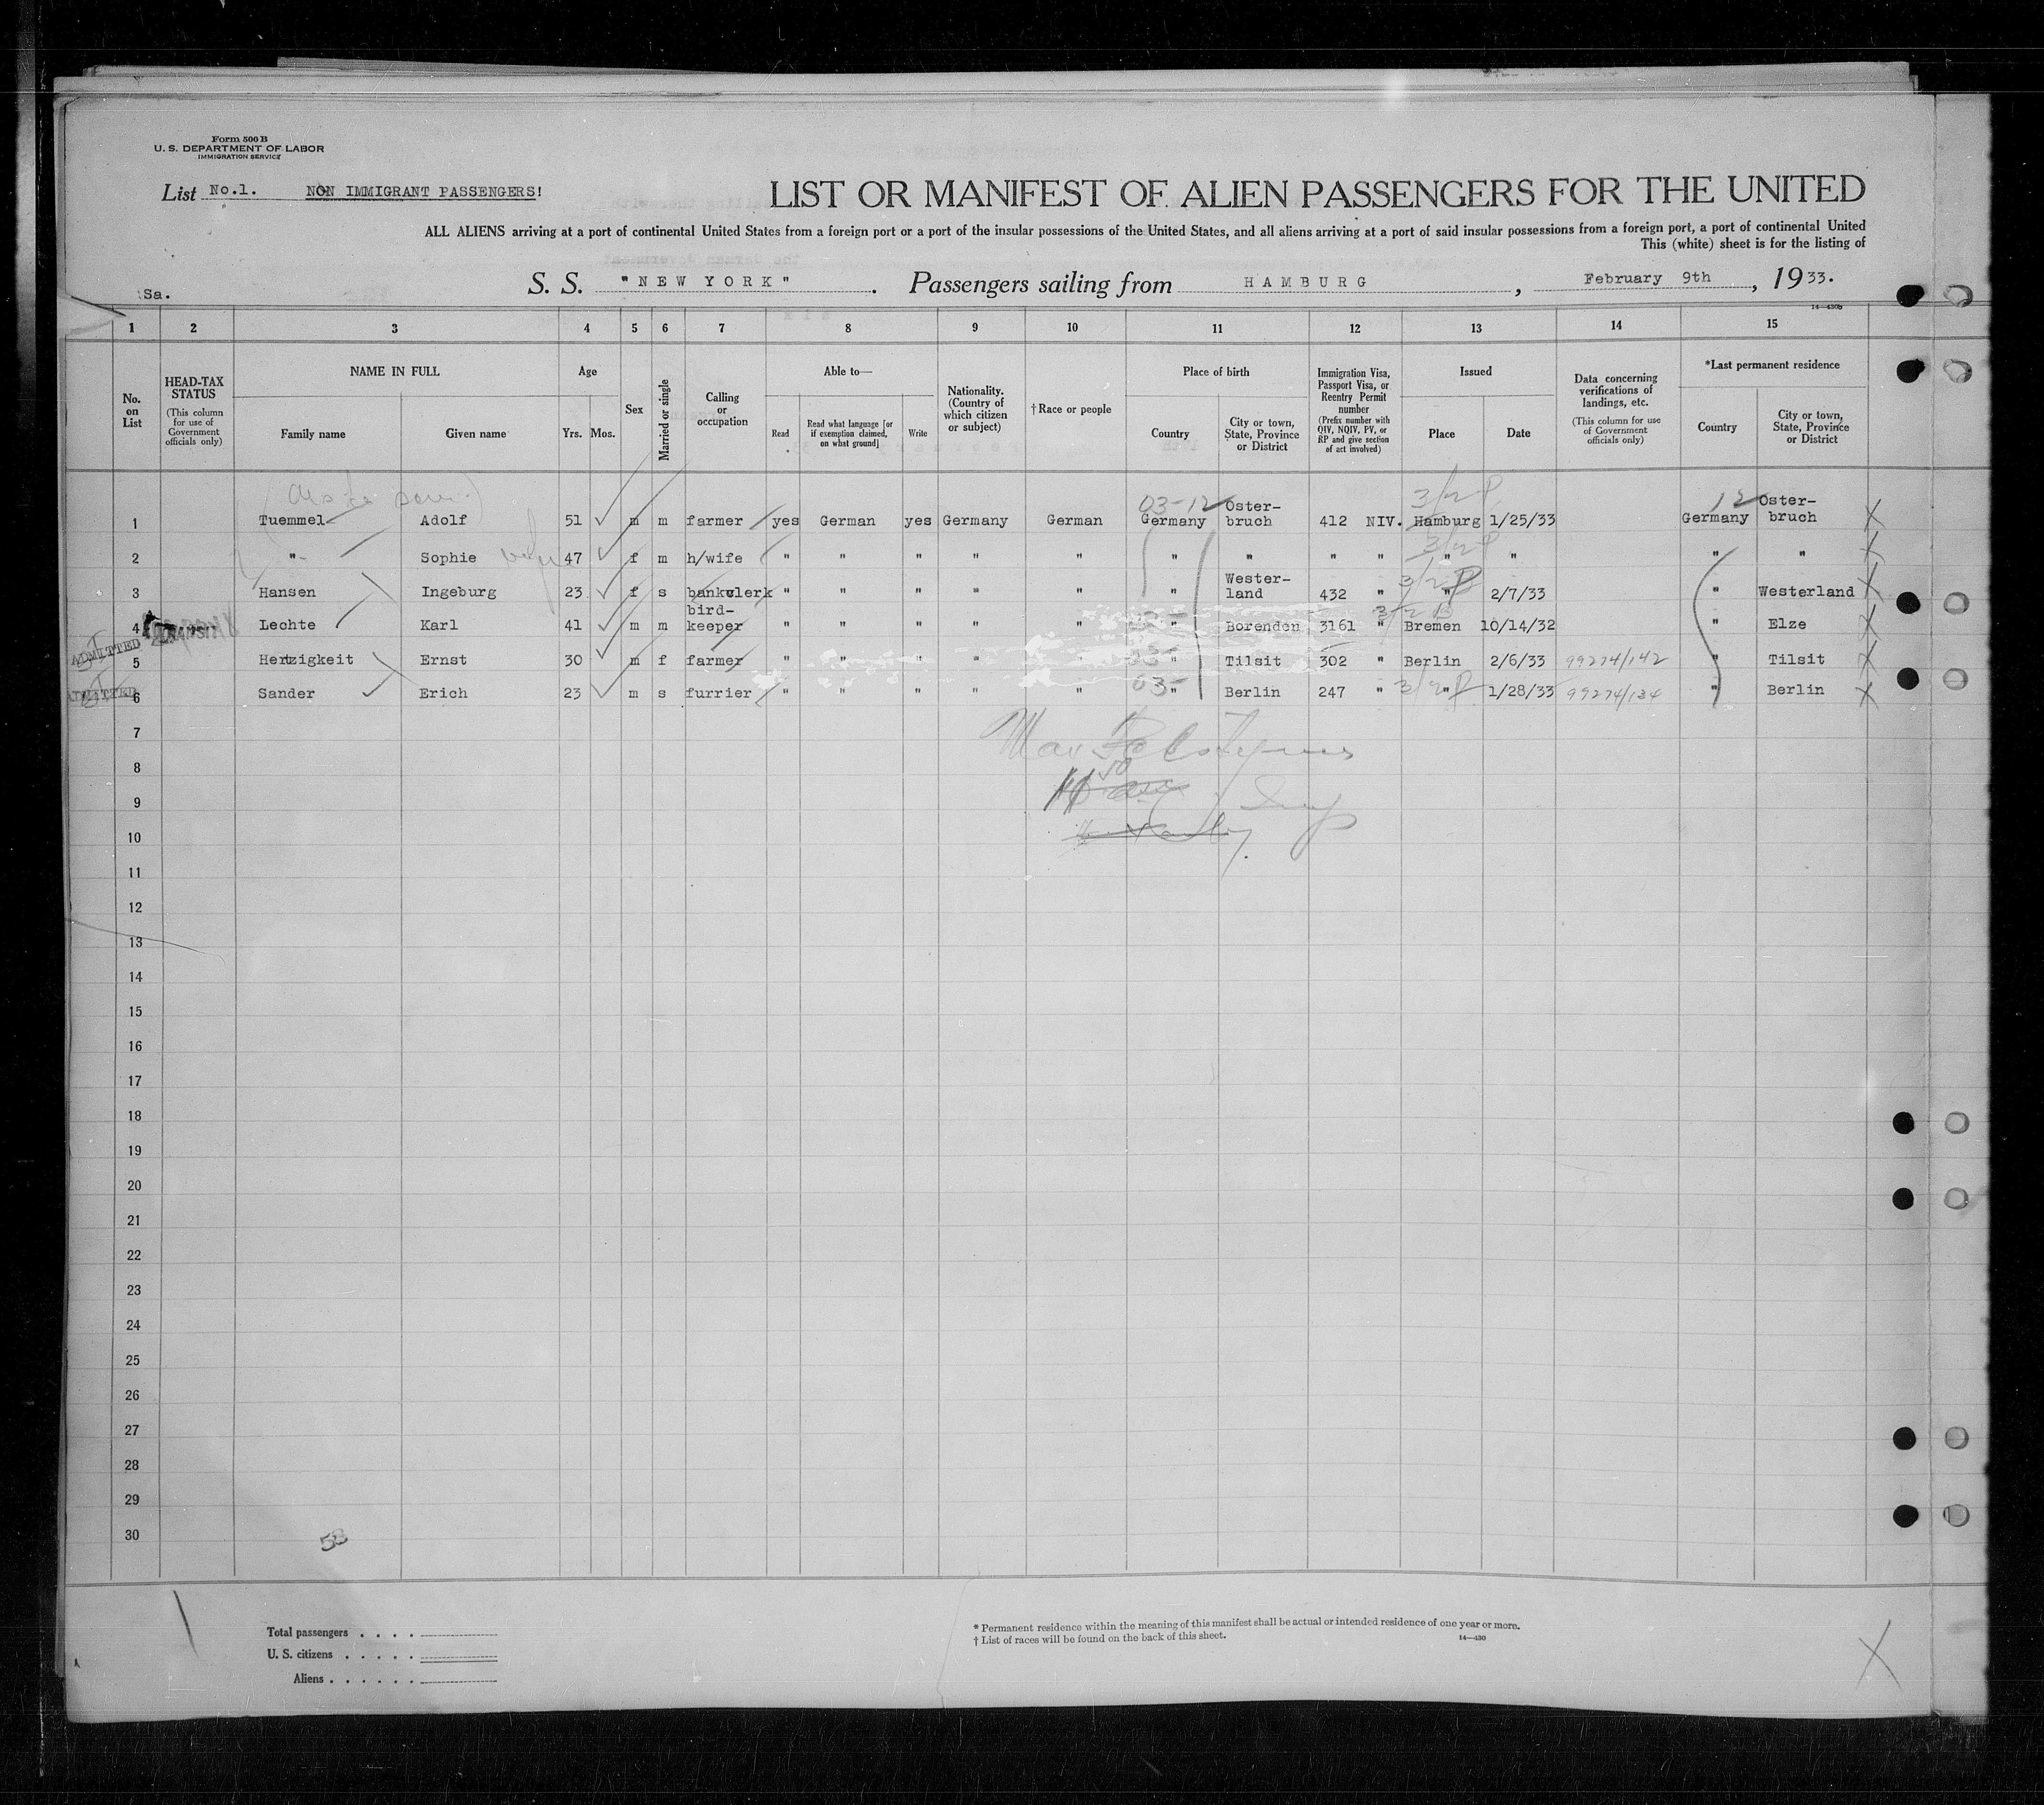 Form 500 B
U. S. DEPARTMENT OF LABOR
IMMIGRATION SERVICE
List No.1. NON IMMIGRANT PASSENGERS!
LIST OR MANIFEST OF ALIEN PASSENGERS FOR THE UNITED
ALL ALIENS arriving at a port of continental United States from a foreign port or a port of the insular possessions of the United States, and all aliens arriving at a port of said insular possessions from a foreign port, a port of continental United
This (white) sheet is for the listing of
Sa.
S. S. "NEW YORK". Passengers sailing from HAMBURG, February 9th, 1933.
14—430b
1 2 3 4 5 6 7 8 9 10 11 12 13 14 15
No. on List
HEAD-TAX STATUS (This column for use of Government officials only)
NAME IN FULL Family name Given name
Age Yrs. Mos.
Sex
Married or single
Calling or occupation
Able to— Read Read what language [or if exemption claimed, on what ground] Write
Nationality. (Country of which citizen or subject)
†Race or people
Place of birth Country City or town, State, Province or District
Immigration Visa, Passport Visa, or Reentry Permit number (Prefix number with QIV, NQIV, PV, or RP and give section of act involved)
Issued Place Date
Data concerning verifications of landings, etc. (This column for use of Government officials only)
*Last permanent residence Country City or town, State, Province or District
03-12 3/2 P 12
1 Tuemmel Adolf 51 m m farmer yes German yes Germany German Germany Oster-bruch 412 NIV. Hamburg 1/25/33 Germany Oster-bruch
2 " Sophie 47 f m h/wife " " " " " " " " " " " " "
3 Hansen Ingeburg 23 f s bankclerk " " " " " " Wester-land 432 " " 2/7/33 " Westerland
4 Lechte Karl 41 m m bird-keeper " " " " " " Borenden 3161 " Bremen 10/14/32 " Elze
ADMITTED 5 Hertzigkeit Ernst 30 m f farmer " " " " " 03- " Tilsit 302 " Berlin 2/6/33 99274/142 " Tilsit
ADMITTED 6 Sander Erich 23 m s furrier " " " " " 03- " Berlin 247 " 3/2 P " 1/28/33 99274/134 " Berlin
7
8
9
10
11
12
13
14
15
16
17
18
19
20
21
22
23
24
25
26
27
28
29
30
53
Total passengers . . . .
U. S. citizens . . . . .
Aliens . . . . . .
* Permanent residence within the meaning of this manifest shall be actual or intended residence of one year or more.
† List of races will be found on the back of this sheet.
14—430